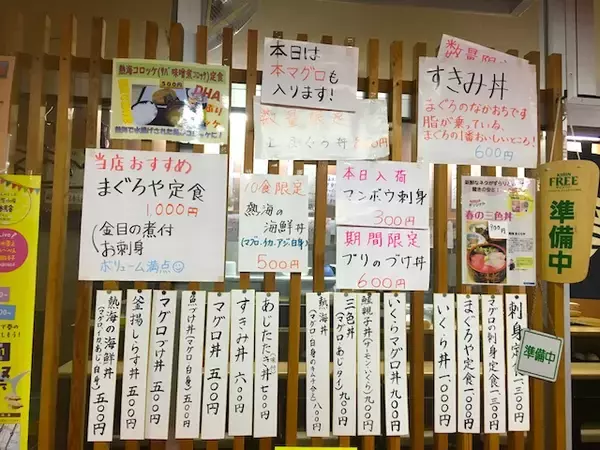 本日は
本マグロも
入ります!
数量限定
すきみ丼
まぐろのなかおちです
脂が乗っている、
まぐろの1番おいしいところ!
600円
熱海コロッケ(サバ味噌煮コロッケ)定食
DHA
当店おすすめ
まぐろや定食
1,000円
金目の煮付
お刺身
ボリューム満点
10食限定
熱海の
海鮮丼
(マグロ・イカ・アジ・白身)
500円
本日入荷
マンボウ刺身
300円
期間限定
ブリのづけ丼
600円
春の三色丼
FREE
準備中
準備中
熱海の海鮮丼
(マグロ・イカ・あじ・白身)
五〇〇円
釜揚しらす丼 五〇〇円
マグロづけ丼 五〇〇円
魚づけ丼(マグロ・白身) 五〇〇円
マグロ丼 五〇〇円
すきみ丼 六〇〇円
あじたたき丼 七〇〇円
熱海丼
(マグロ・白身のキムチ合え)
八〇〇円
三色丼
(マグロ・あじ・タイ)
九〇〇円
鮭親子丼(サーモン・いくら) 九〇〇円
いくらマグロ丼 九〇〇円
いくら丼 一、〇〇〇円
まぐろや定食 一、〇〇〇円
マグロの刺身定食 一、三〇〇円
刺身定食 一、三〇〇円